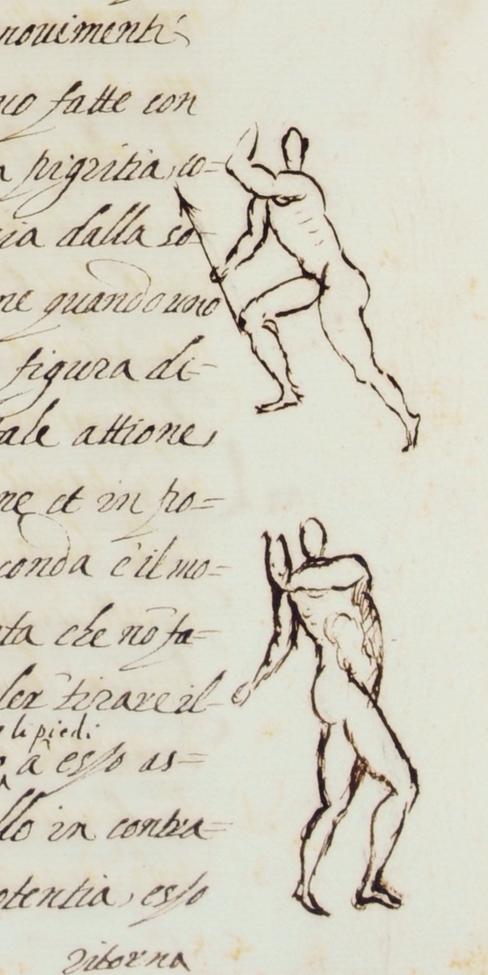 mouimenti
fatte con
pigritia, co=
dalla so=
ne quando uno
figura di=
ale attione,
ne et in po=
conda è il mo=
ta che nõ fa=
tirare il=
li piedi
à esso as=
llo in contra=
otentia, esso
ritorna